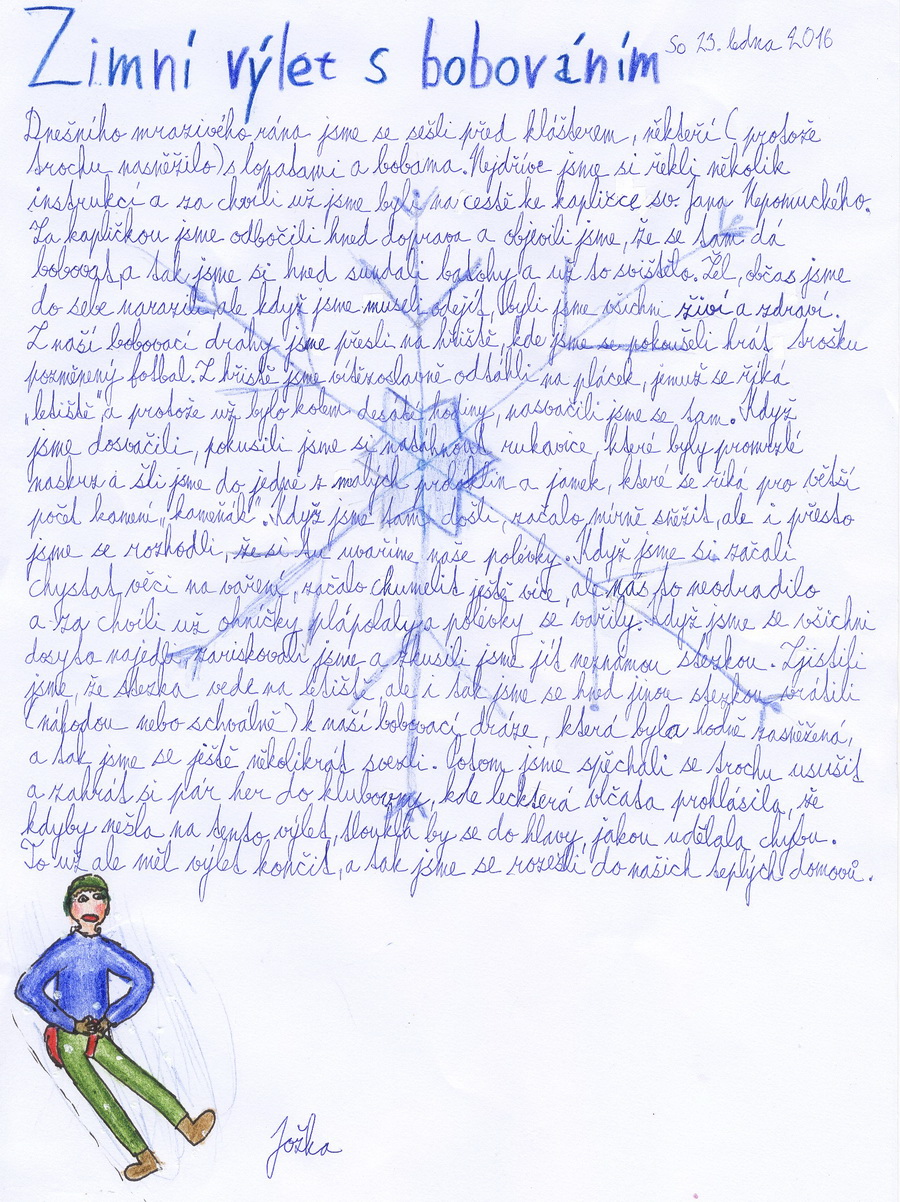 Zimní výlet s bobováním
So 23. ledna 2016
Dnešního mrazivého rána jsme se sešli před klášterem, někteří (protože
trochu nasněžilo) s lopatami a bobama. Nejdříve jsme si řekli několik
instrukcí a za chvíli už jsme byli na cestě ke kapličce sv. Jana Nepomuckého.
Za kapličkou jsme odbočili hned doprava a objevili jsme, že se tam dá
bobovat, a tak jsme si hned sundali batohy a už to svištělo. Žel, občas jsme
do sebe narazili, ale když jsme museli odejít, byli jsme všichni živí a zdraví.
Z naší bobovací dráhy jsme přešli na hřiště, kde jsme se pokoušeli hrát trošku
pozměnený fotbal. Z hřiště jsme vítězoslavně odtáhli na plácek, jemuž se říká
„letiště" a protože už bylo kolem desáté hodiny, nasvačili jsme se tam. Když
jsme dosvačili, pokusili jsme si natáhnout rukavice, které byly promrzlé
naskrz a šli jsme do jedné z malých prdin a jamek, které se říká pro větší
počet kamení „kameňák". Když jsme tam došli, začalo mírně sněžit, ale i přesto
jsme se rozhodli, že si tu uvaříme naše polévky. Když jsme si začali
chystat věci na vaření, začalo chumelit ještě více, ale nás to neodradilo
a za chvíli už ohníčky plápolaly a polévky se vařily. Když jsme se všichni
dosyta najedli, zariskovali jsme a zkusili jsme jít neznámou stezkou. Zjistili
jsme, že stezka vede na letiště, ale i tak jsme se hned jinou stezkou vrátili
(náhodou nebo schválně) k naší bobovací dráze, která byla hodně zasněžená,
a tak jsme se ještě několikrát svezli. Potom jsme spěchali se trochu usušit
a zahrát si pár her do klubovny, kde leckterá vlčata prohlásila, že
kdyby nešla na tento výlet, tloukla by se do hlavy, jakou udělala chybu.
To už ale měl výlet končit, a tak jsme se rozešli do našich teplých domovů.
Jožka